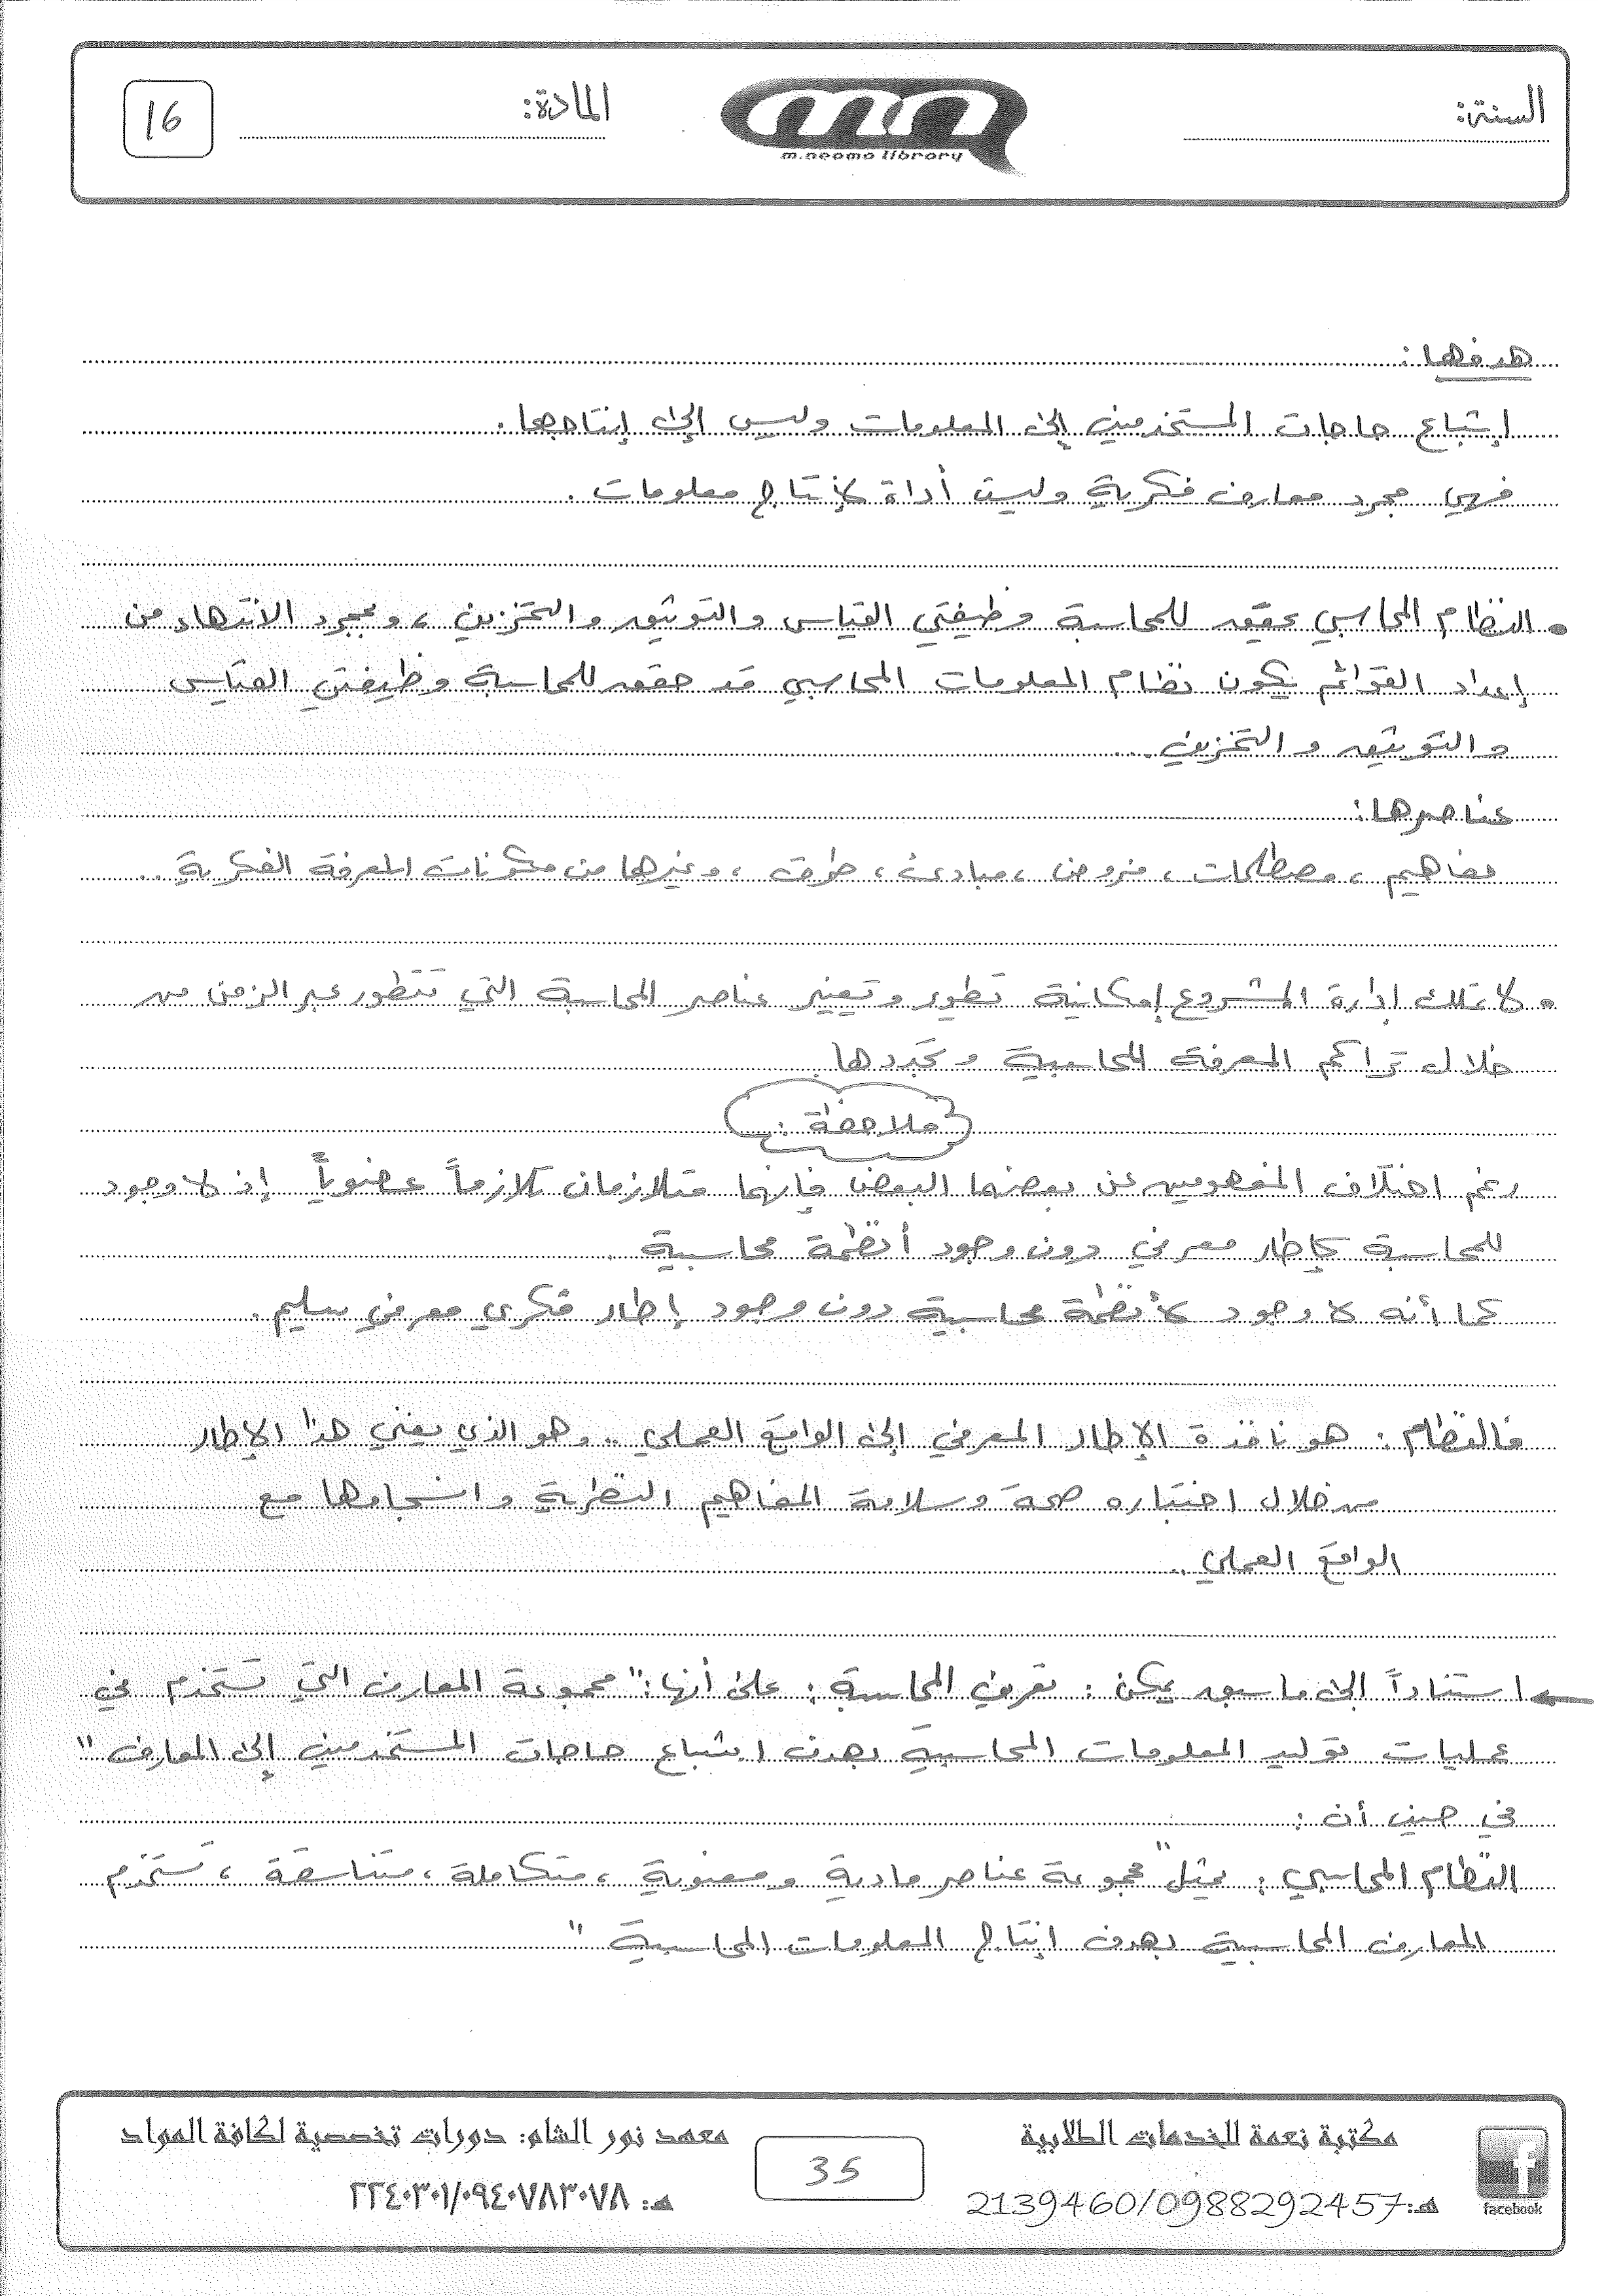 السنة:
المادة:
16
m.neoma library
هدفها:
إشباع حاجات المستخدمين إلى المعلومات وليس إلى إنتاجها.
فهي مجرد معارف فكرية وليست أداة لإنتاج معلومات.
• النظام المحاسبي يحقق للمحاسبة وظيفتي القياس والتوثيق والتخزين، وبمجرد الانتهاء من
إعداد القوائم يكون نظام المعلومات المحاسبي قد حقق للمحاسبة وظيفتي القياس
والتوثيق والتخزين...
عناصرها:
مفاهيم، مصطلحات، فروض، مبادئ، طرق، وغيرها من مكونات المعرفة الفكرية..
• لا تملك إدارة المشروع إمكانية تطوير وتغيير عناصر المحاسبة التي تتطور عبر الزمن من
خلال تراكم المعرفة المحاسبية وتجددها.
ملاحظة:
رغم اختلاف المفهومين عن بعضهما البعض فإنهما متلازمان تلازماً عضوياً إذ لا وجود
للمحاسبة كإطار معرفي دون وجود أنظمة محاسبية.
كما أنه لا وجود لأنظمة محاسبية دون وجود إطار فكري معرفي سليم.
فالنظام: هو نافذة الإطار المعرفي إلى الواقع العملي.. وهو الذي يغني هذا الإطار
من خلال اختباره صحة وسلامة المفاهيم النظرية وانسجامها مع
الواقع العملي..
← استناداً إلى ما سبق يمكن: تعريف المحاسبة: على أنها: "مجموعة المعارف التي تستخدم في
عمليات توليد المعلومات المحاسبية بهدف إشباع حاجات المستخدمين إلى المعارف"
في حين أن:
النظام المحاسبي: يمثل "مجموعة عناصر مادية ومعنوية، متكاملة، متناسقة، تستخدم
المعارف المحاسبية بهدف إنتاج المعلومات المحاسبية"
مكتبة نعمة للخدمات الطلابية
هـ: 2139460/0988292457
35
معهد نور الشام: دورات تخصصية لكافة المواد
هـ: ٢٢٤٠٣٠١/٠٩٤٠٧٨٣٠٧٨
facebook